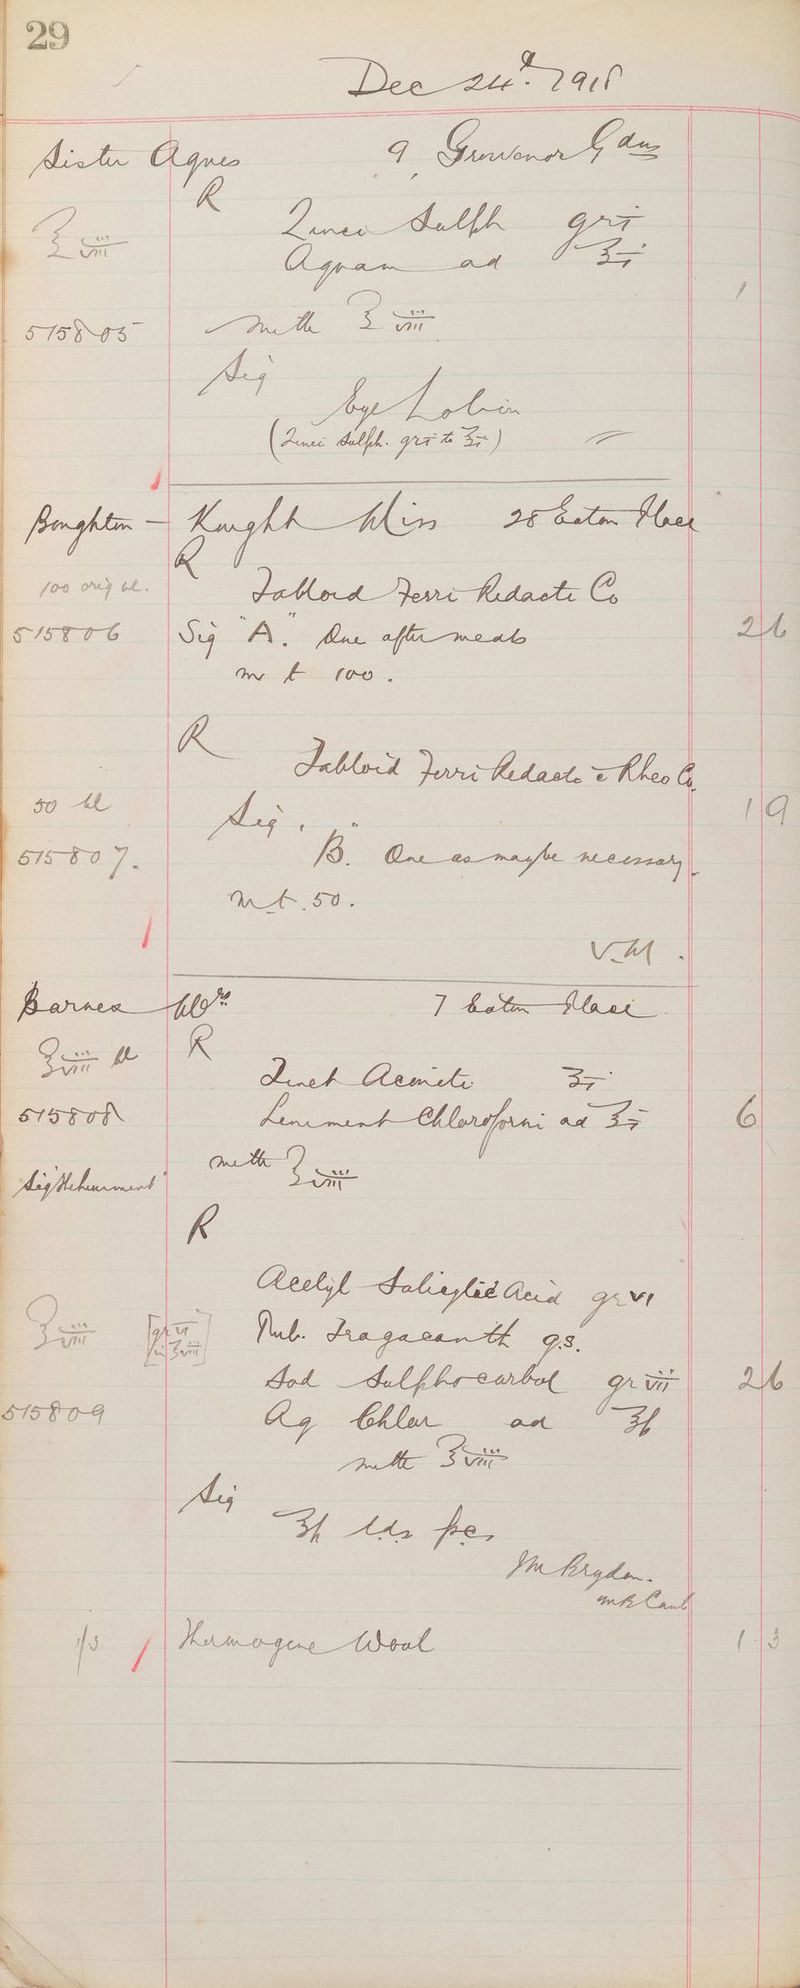 29
Dec 24th. 1918
Sister Agnes 9, Grosvenor Gdns
R
℥viii Zinci Sulph gr i
Aquam ad ℥i
1
515805 mitte ℥viii
Sig
Eye Lotion
(Zinci Sulph. gr i to ℥i)
Boughton - Knight Miss 28 Eaton Place
R
100 orig bl. Tabloid Ferri Redacti Co
515806 Sig "A". One after meals 2 6
m t 100.
R
Tabloid Ferri Redacti c Rheo Co.
50 bl 1 9
Sig.
515807. "B. One as may be necessary.
m t. 50.
V.M.
Barnes Mrs 7 Eaton Place
℥viii bl R
Tinct Aconiti ʒi
515808 Liniment Chloroformi ad ℥i 6
mitte ℥viii
Sig "The Liniment"
R
Acetyl Salicylic Acid gr vi
℥viii [gr vi in ℥viii] Pulv. Tragacanth q.s.
Sod Sulphocarbol gr vii 2 6
515809 Aq Chlor ad ℥ſs
mitte ℥viii
Sig
℥ſs t.d.s p.c.
M Bryden.
MB Cantb
1/3 Thermogene Wool 1 3